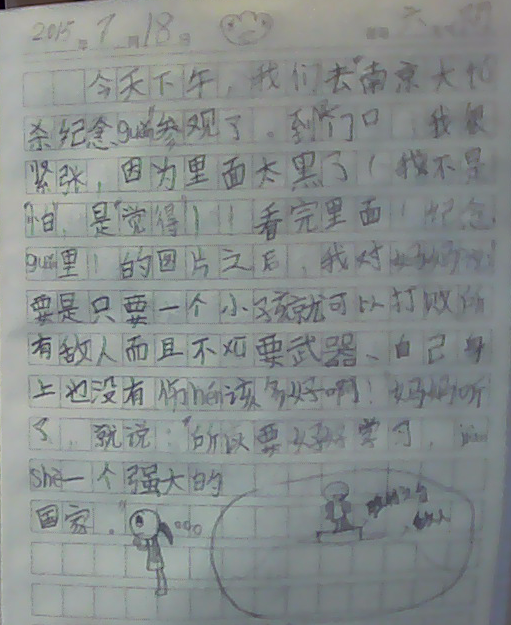 2015年7月18 六
今天下午,我们去"南京大
杀纪念guǎn"参观了。到门口,我很
紧张,因为里面太黑了!我不是
"怕",是"觉得"!!看完里面!纪念
guǎn里!的图片之后,我对妈妈
要是只要一个小孩就可以打败所
有敌人而且不如要武器、自己身
上也没有伤hén该多好啊!妈妈听
了,就说:"所以要好好学习,
shè一个强大的
国家."